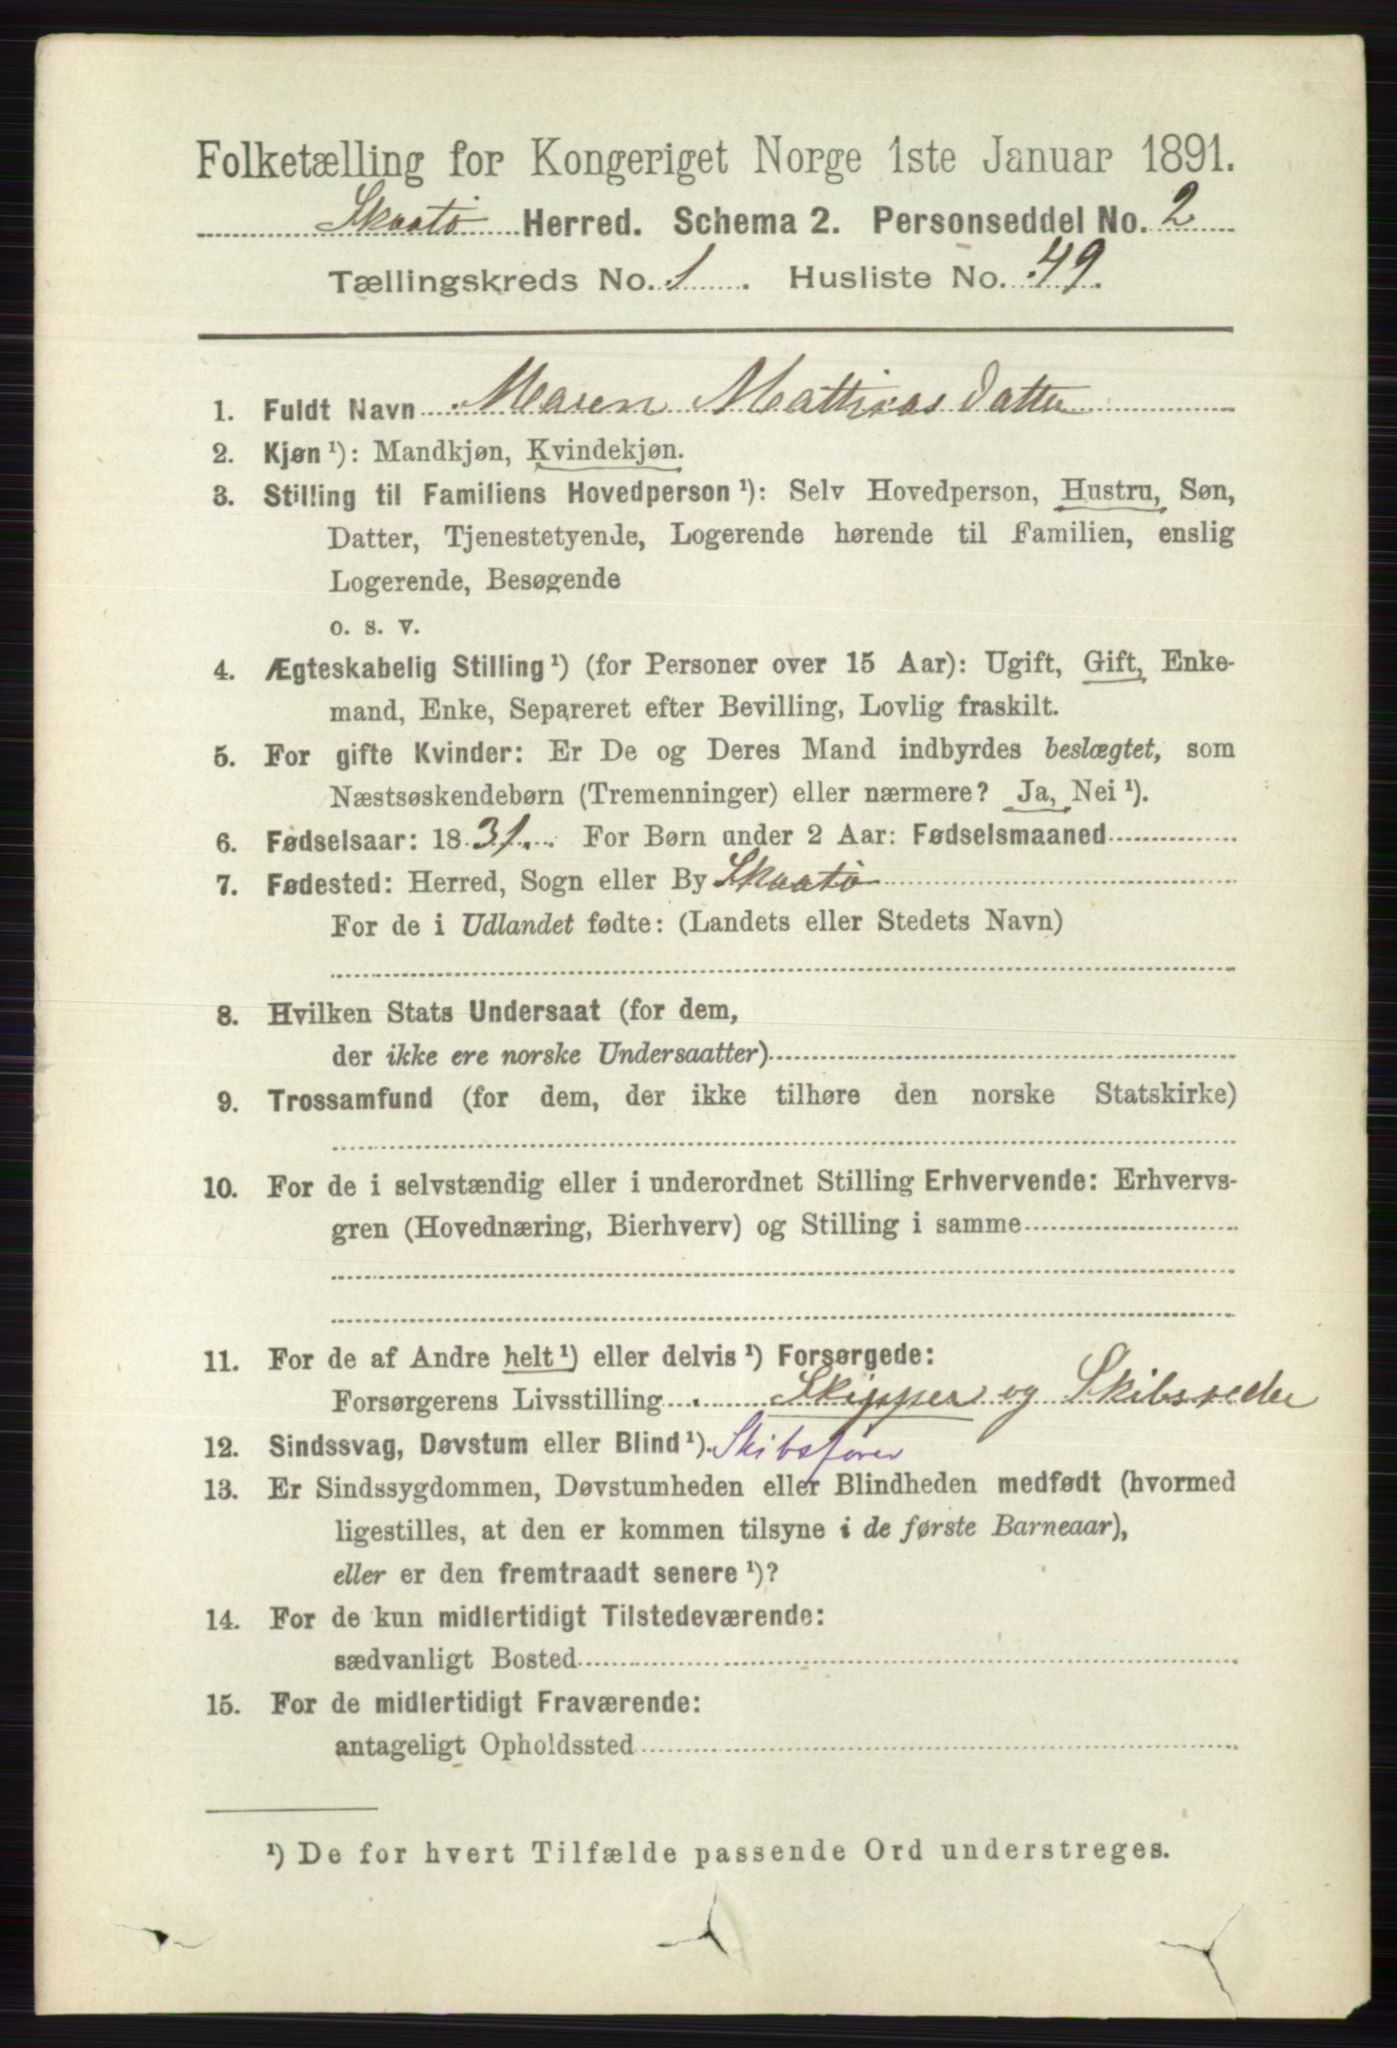 Folketælling for Kongeriget Norge 1ste Januar 1891.
Skaatö Herred. Schema 2. Personseddel No. 2
Tællingskreds No. 1. Husliste No. 49.
1. Fuldt Navn Maren Mathias Datter
2. Kjøn¹): Mandkjøn, Kvindekjøn.
3. Stilling til Familiens Hovedperson¹): Selv Hovedperson, Hustru, Søn,
Datter, Tjenestetyende, Logerende hørende til Familien, enslig
Logerende, Besøgende
o. s. v.
4. Ægteskabelig Stilling¹) (for Personer over 15 Aar): Ugift, Gift, Enke-
mand, Enke, Separeret efter Bevilling, Lovlig fraskilt.
5. For gifte Kvinder: Er De og Deres Mand indbyrdes beslægtet, som
Næstsøskendebørn (Tremenninger) eller nærmere? Ja, Nei¹).
6. Fødselsaar: 1831. For Børn under 2 Aar: Fødselsmaaned
7. Fødested: Herred, Sogn eller By Skaatö
For de i Udlandet fødte: (Landets eller Stedets Navn)
8. Hvilken Stats Undersaat (for dem,
der ikke ere norske Undersaatter)
9. Trossamfund (for dem, der ikke tilhøre den norske Statskirke)
10. For de i selvstændig eller i underordnet Stilling Erhvervende: Erhvervs-
gren (Hovednæring, Bierhverv) og Stilling i samme
11. For de af Andre helt¹) eller delvis¹) Forsørgede:
Forsørgerens Livsstilling Skipper og Skibsreder
12. Sindssvag, Døvstum eller Blind¹). Skibsfører
13. Er Sindssygdommen, Døvstumheden eller Blindheden medfødt (hvormed
ligestilles, at den er kommen tilsyne i de første Barneaar),
eller er den fremtraadt senere¹)?
14. For de kun midlertidigt Tilstedeværende:
sædvanligt Bosted
15. For de midlertidigt Fraværende:
antageligt Opholdssted
¹) De for hvert Tilfælde passende Ord understreges.